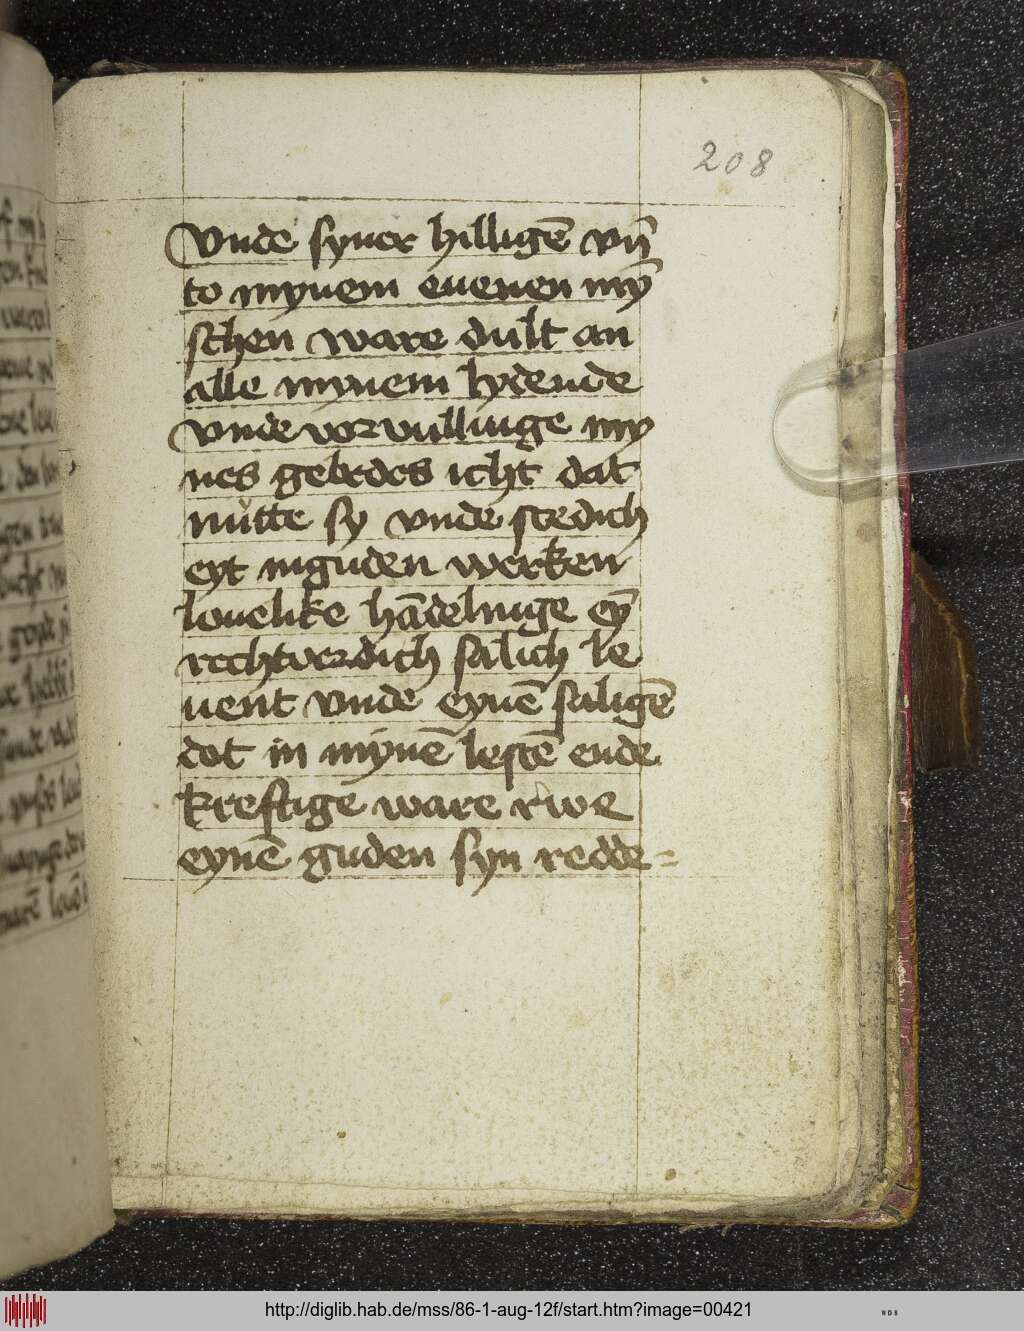 208
vnde syner hilligē vn̄
to mynem euenen mȳ
schen ware dult an
alle mynem lydende
vnde vorvullinge my
nes gebedes icht dat
nutte sy vnde stedich
eyt inguden werken
louelike hādelinge eȳ
rechtverdich salich le
uent vnde eynē saligē
dot in mynē lestē ende
kreftige ware rwe
eynē guden syn redde=
http://diglib.hab.de/mss/86-1-aug-12f/start.htm?image=00421